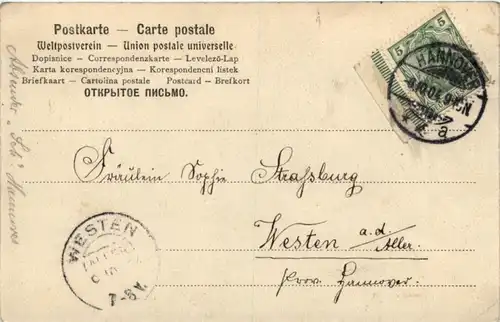 Postkarte — Carte postale
Weltpostverein — Union postale universelle
Dopisnice - Correspondenzkarte - Levelező-Lap
Karta korespondencyjna — Korespondencni listek
Briefkaart - Cartolina postale Postcard - Brefkort
ОТКРЫТОЕ ПИСЬМО.
5 5
HANNOVER
a
Fräulein Sophie Strassburg
Westen a.d./Aller.
Prov. Hannover.
WESTEN
7-8 V.
Absender
Hannover